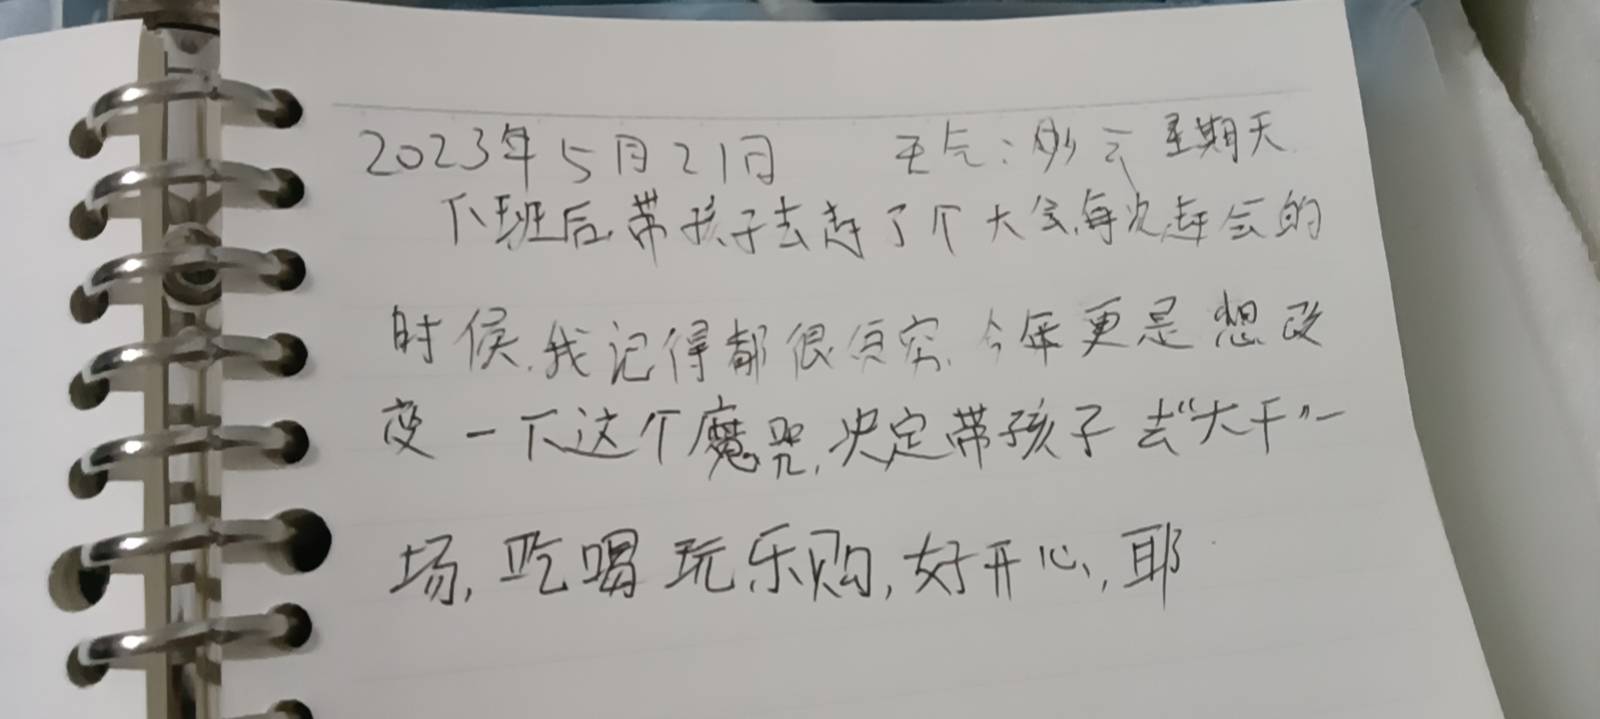 2023年5月21日 天气:多云 星期天
下班后,带孩子去赶了个大会,每次赶会的
时候,我记得都很贫穷,今年更是想改
变一下这个魔咒,决定带孩子去“大干”一
场,吃喝玩乐购,好开心,耶